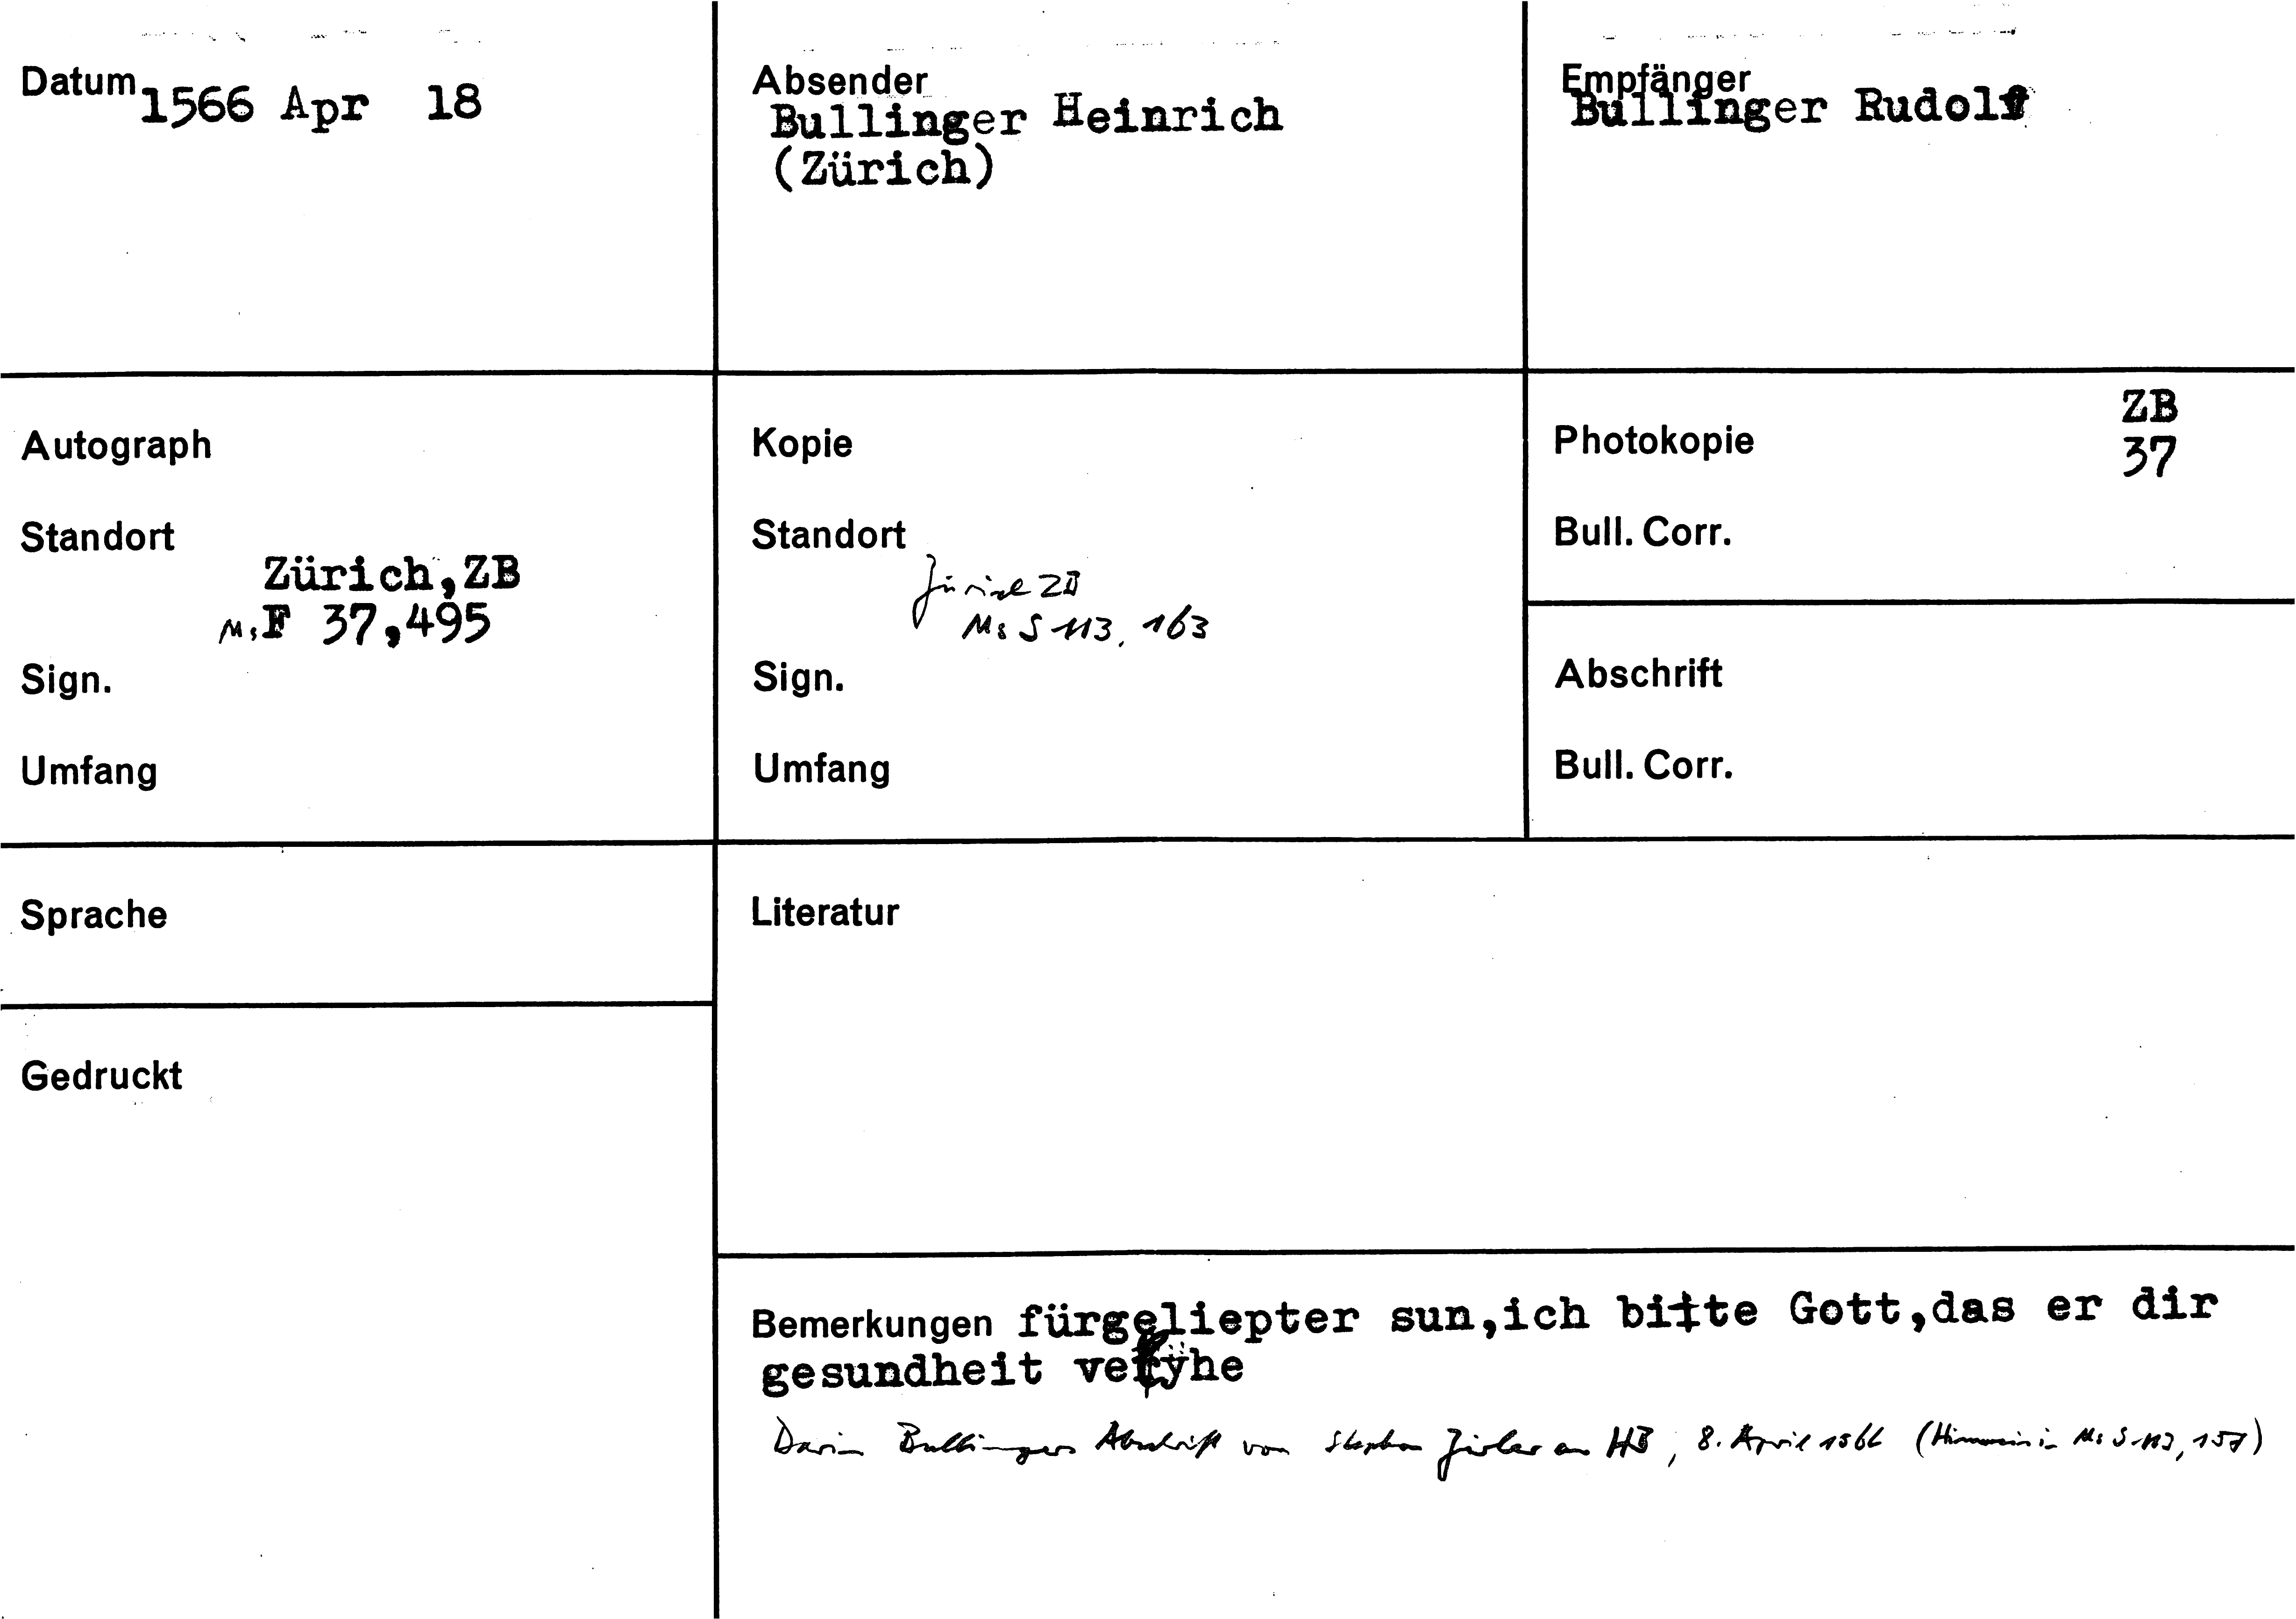 Datum 1566 Apr 18
Absender
Bullinger Heinrich
(Zürich)
Empfänger
Bullinger Rudolf
Autograph
Standort
Zürich,ZB
Ms F 37,495
Sign.
Umfang
Kopie
Standort
Zürich ZB
Ms S 113, 163
Sign.
Umfang
ZB
Photokopie 37
Bull. Corr.
Abschrift
Bull. Corr.
Sprache
Literatur
Gedruckt
Bemerkungen fürgeliepter sun,ich bitte Gott,das er dir
gesundheit veryhe
Darin Bullingers Abschrift von Stephan Zirler an HB, 8. April 1566 (Hinweis in Ms S 113, 157)